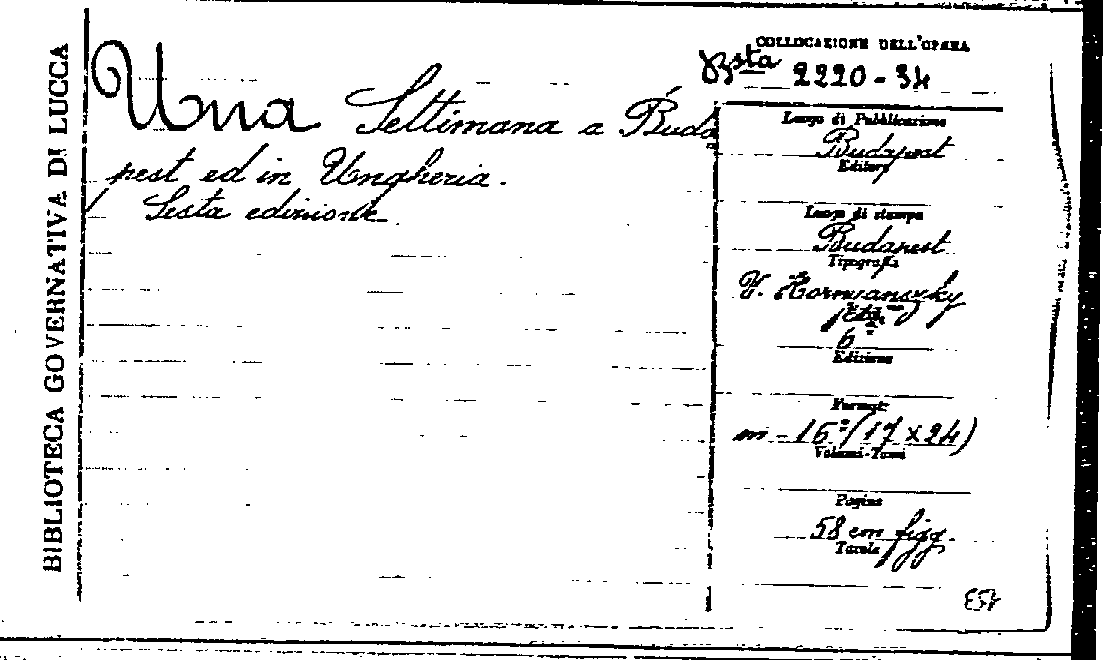 BIBLIOTECA GOVERNATIVA DI LUCCA
Una Settimana a Buda
pest ed in Ungheria.
Sesta edizione
COLLOCAZIONE DELL'OPERA
Bsta 2220-34
Luogo di Pubblicazione
Budapest
Editore
Luogo di stampa
Budapest
Tipografia
V. Hornyanszky
6ª
Edizione
Formato
in-16º (17 x 24)
Volumi-Tomi
Pagine
58 con figg.
Tavole